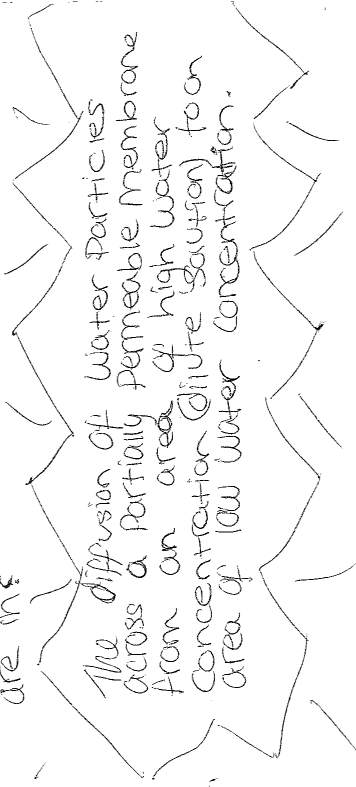 are the
The diffusion of water Particles
across a Partially Permeable Membrane
from an area of high water
Concentration (dilute Soution) to an
area of low water concentration.